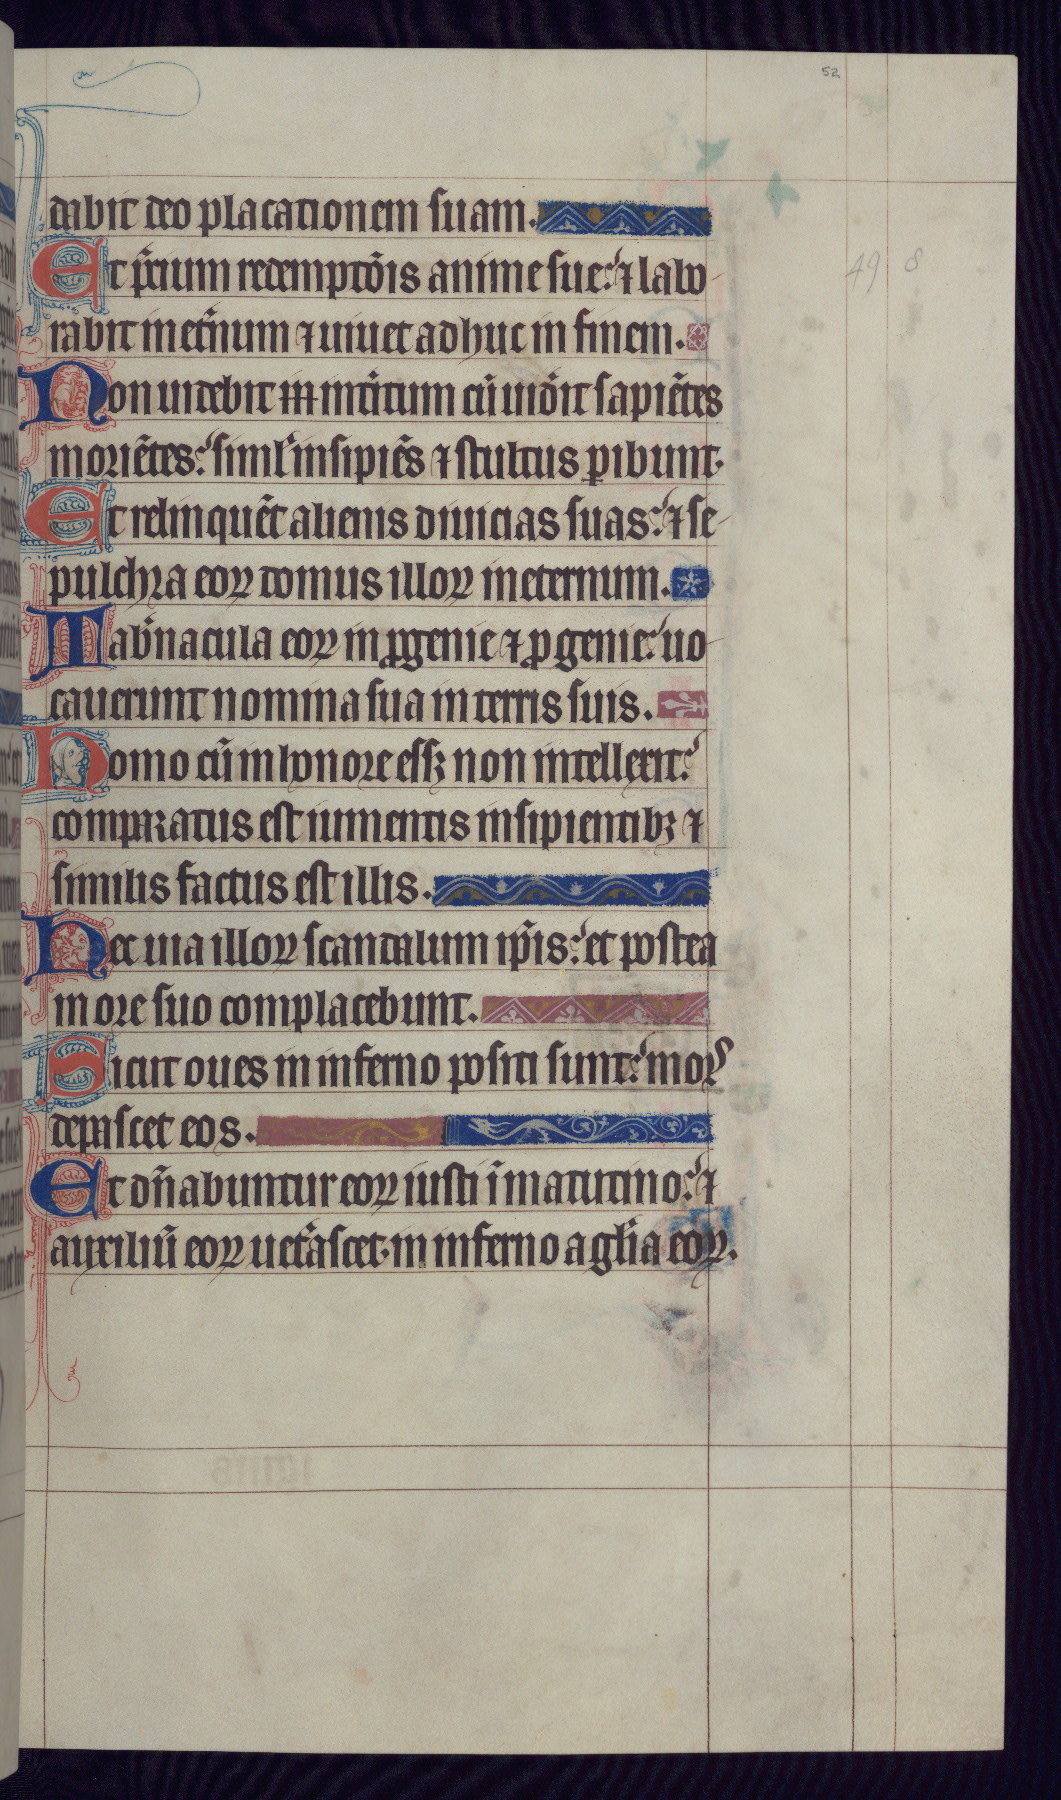 52
dabit deo placationem suam.
Et p̄cium redemptōis anime sue: ⁊ labo
rabit in et̄num ⁊ uiuet adhuc in finem.
49 8
Non uidebit int̄itum cū uid̄it sapiētes
moriētes: simul insipiēs ⁊ stultus ꝑibunt.
Et relinquēt alienis diuicias suas: ⁊ se
pulchra eoꝝ domus illoꝝ in eternum.
Tab̄nacula eoꝝ in ꝓgenie ⁊ ꝓgenie: uo
cauerunt nomina sua in terris suis.
Homo cū in honore essꝫ non intellexit:
comparatus est iumentis insipientibꝫ ⁊
similis factus est illis.
Hec uia illoꝝ scandalum ip̄is: et postea
in ore suo complacebunt.
Sicut oues in inferno positi sunt: morˢ
depascet eos.
Et dn̄abuntur eoꝝ iusti ī matutino: ⁊
auxiliū eoꝝ uet̄ascet in inferno a gl̄ia eoꝝ.